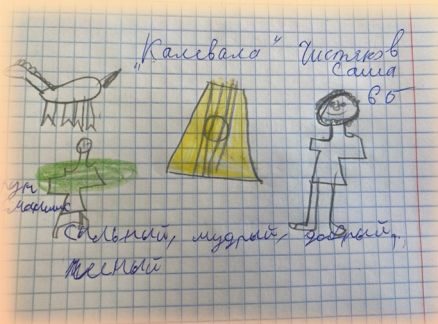 "Калевала" Чистяков
Саша
6б
Сильный, мудрый, добрый,